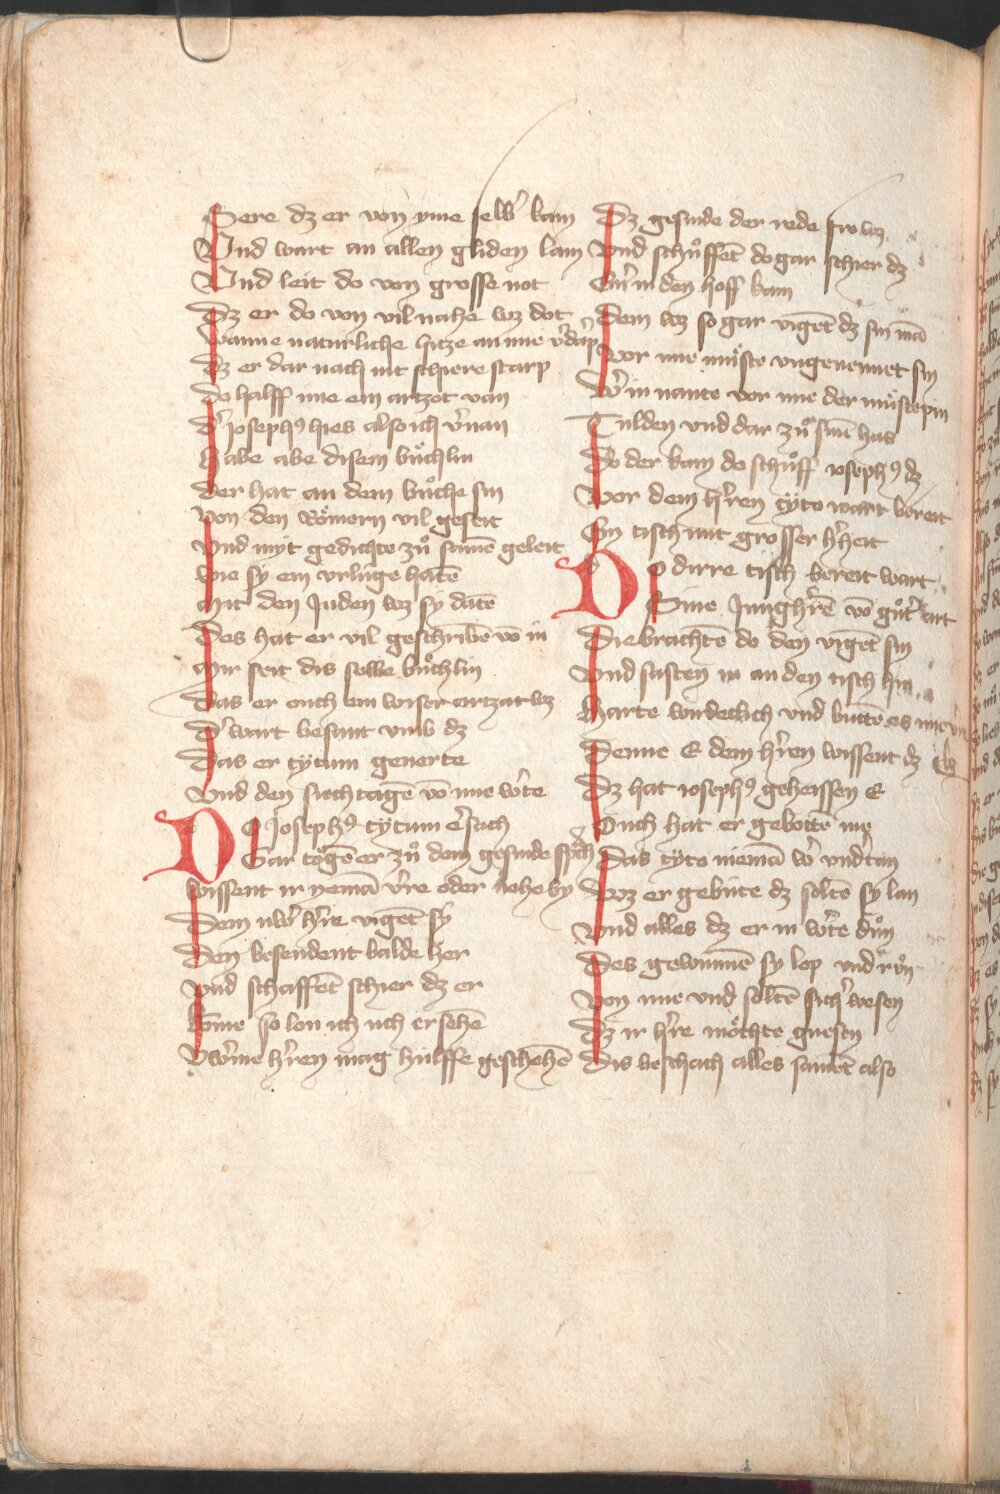 Sere dz er von yme selb' kam
Vnd wart an allen gliden lam
Vnd leit do von grosse not
Dz er do von vil nahe wz dot
Wanne naturliche hitze an ime v'darp
Dz er dar nach nit schiere starp
Do halff ime ein artzot van
D' josephꝰ hies also ich v'nan
Habe abe disem bůchlin
Der hat an dem bůche sin
Von den Römern vil geseit
Vnd myt gedichte zů samē geleit
Wie sy ein vrluge hatē
Mit den Juden wz sy datē
Des hat er vil geschribē vō in
Mir seit dis selbe bůchlin
Das er ouch ein wiser artzat wz
D' wart besant vmb dz
Das er tytum generte
Vnd den siechtagē vō ime w'te
DO josephꝰ tytum ersach
Gar tögē er zů dem gesinde sp'ch
Wissent ir yemā v're oder nohe by
Dem uw' h're vigēt sy
Den besendent balde her
Vnd schaffēt schier dz er
Kōme so lon ich uch ersehē
Vw'me h'ren mag hulffe geschehē
Dz gesinde der rede fro wz
Vnd schůffēt do gar schier dz
Ein' in den hoff kam
Dem wz so gar vigēt dz sin nā
Vor ime můste vngenennet sin
W' in nante vor ime der můste pin
Dulden vnd dar zů sinē has
Do der kam do schůff josephꝰ dz
Vor dem h'ren tyto wart bereit
Ein tisch mit grosser h'heit
DO dirre tisch bereit wart
Sine Jungh'rē vō gůt' art
Die brachtē do den vigēt sin
Vnd sasten in an den tisch hin
Harte wirdeclich vnd buttē es ime
Denne E dem h'ren wissent dz
Dz hat josephꝰ geheissen E
Ouch hat er gebottē me
Das tyto niemā w' vnd'tan
Wz er gebute dz soltē sy lan
Vnd alles dz er in w'te důn
Des gewinnē sy lop vnd růn
Von ime vnd soltē sich' wesen
Dz ir h're möchte genesen
Dis beschach alles samēt also